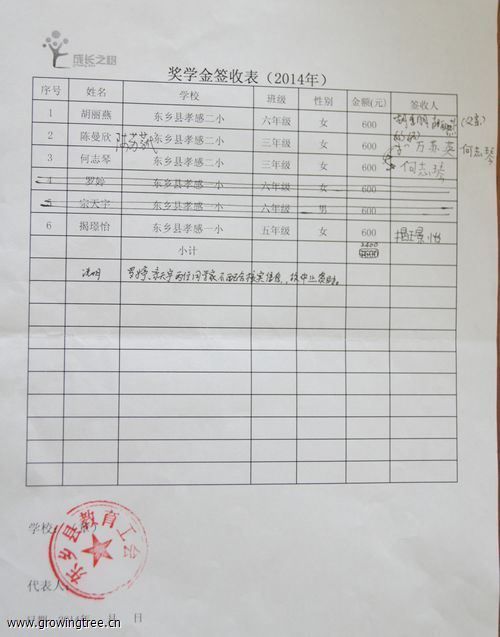 成长之树
奖学金签收表（2014年）
序号 姓名 学校 班级 性别 金额(元) 签收人
1 胡丽燕 东乡县孝感二小 六年级 女 600 (父亲)
2 陈曼欣 东乡县孝感二小 三年级 女 600 万苏英
3 何志琴 东乡县孝感二小 三年级 女 600 何志琴 何志琴
4 罗婷 东乡县孝感一小 六年级 女 600
5 宗天宇 东乡县孝感一小 六年级 男 600
6 揭璟怡 东乡县孝感一小 五年级 女 600 揭璟怡
小计
说明
学校
东乡县教育工会
代表人
日期 2014年 月 日
www.growingtree.cn